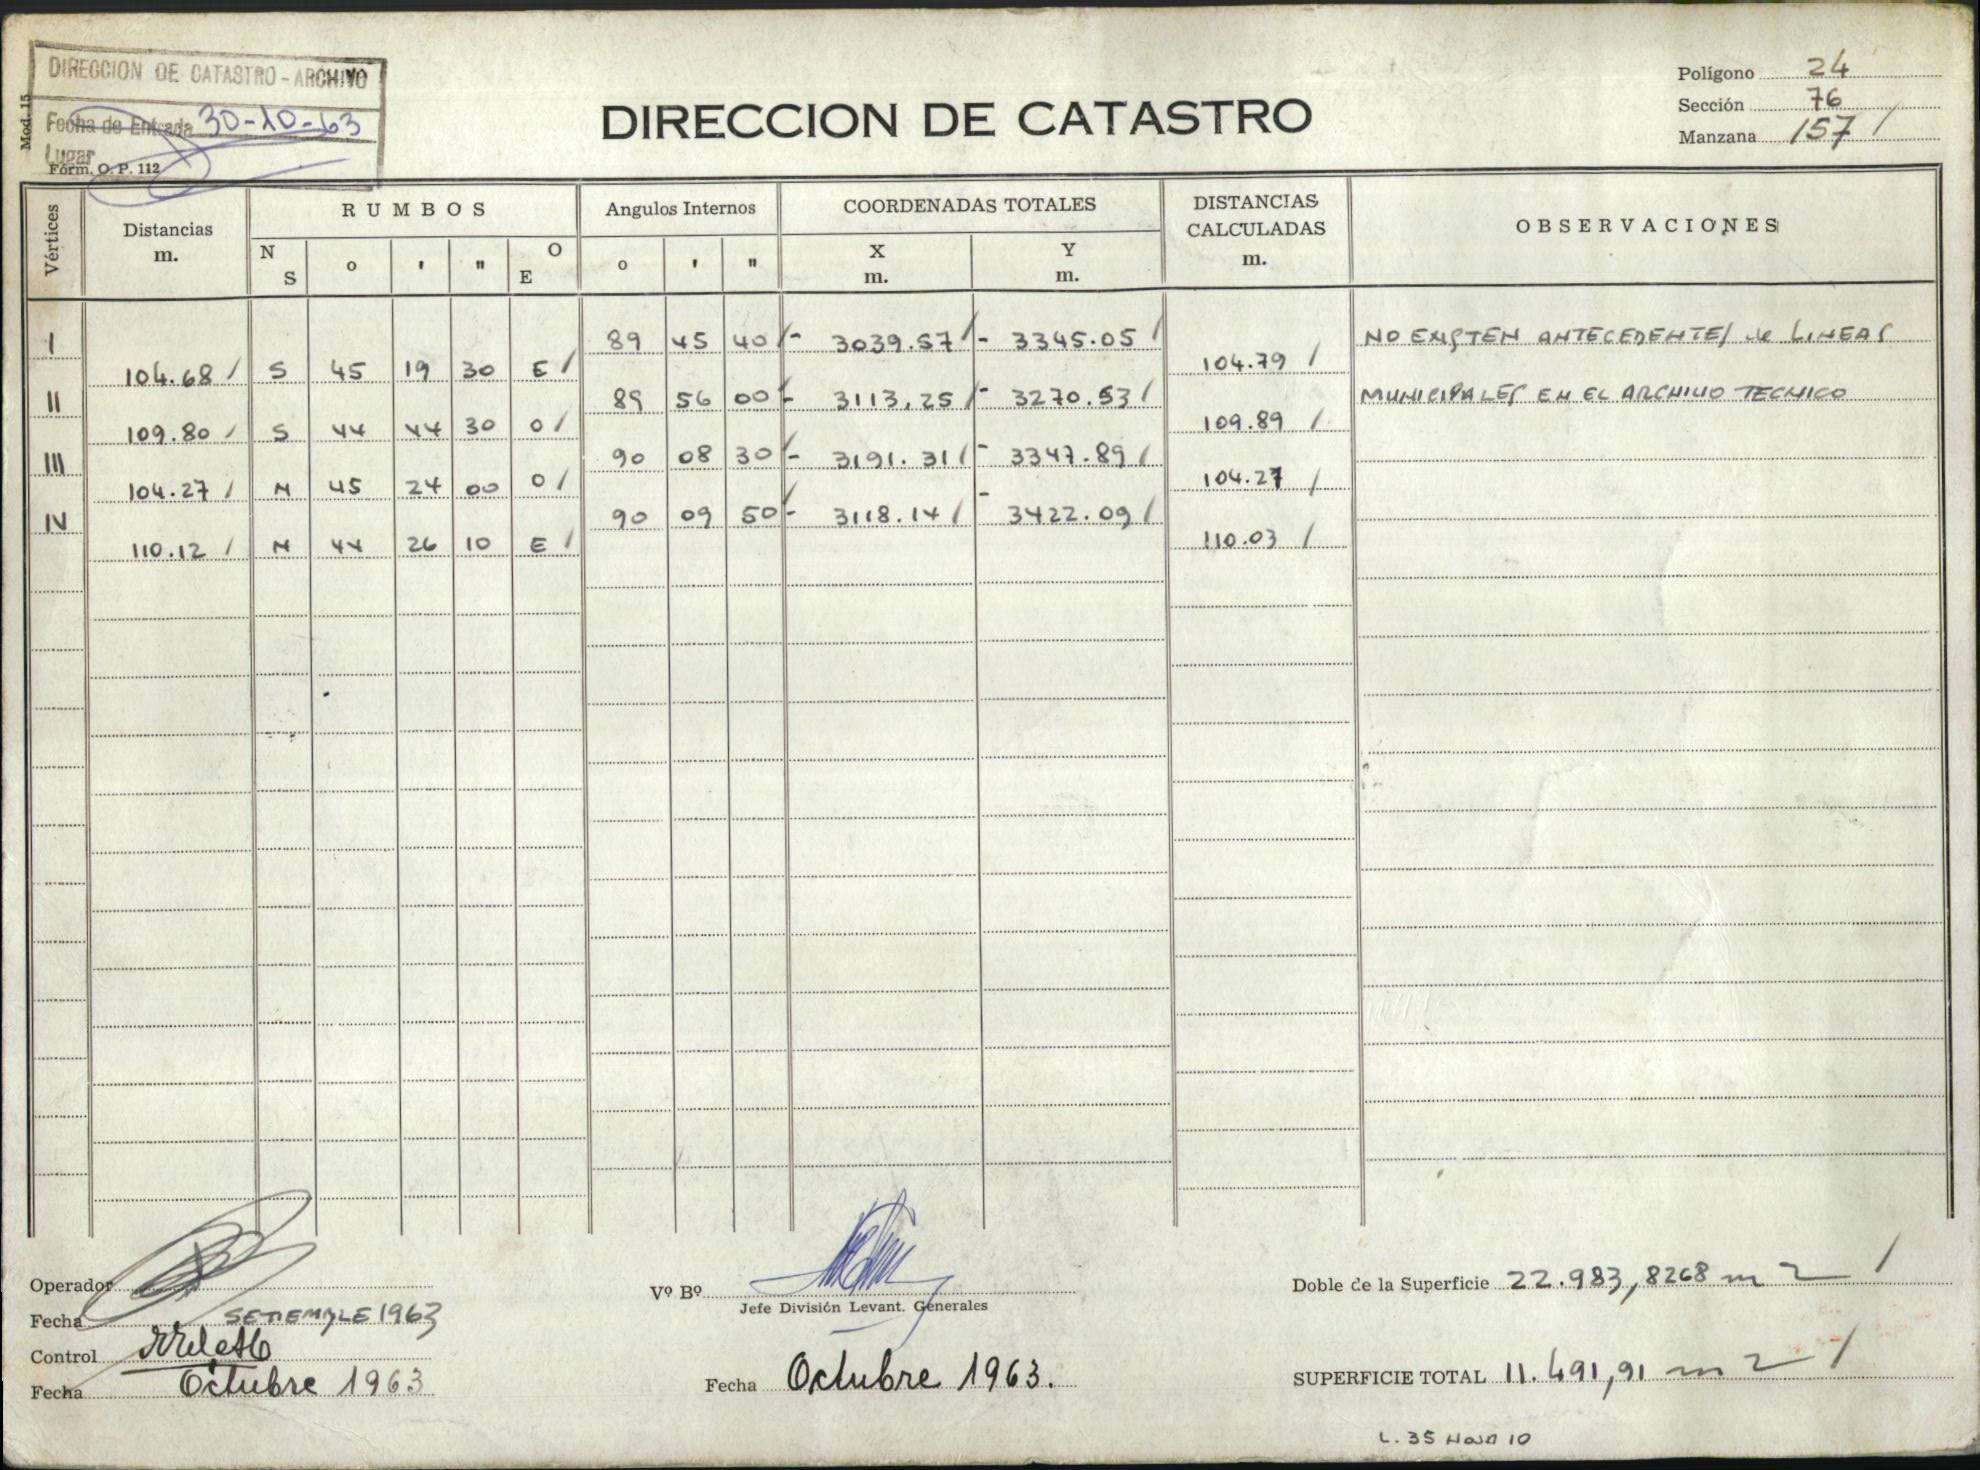 DIRECCION DE CATASTRO - ARCHIVO
Fecha de Entrada 30-10-63
Lugar
Mod. 15
Fórm. O. P. 112
DIRECCION DE CATASTRO
Polígono 24
Sección 76
Manzana 157 /
Vértices
Distancias m.
RUMBOS
N S o ' " O E
Angulos Internos
o ' "
COORDENADAS TOTALES
X m.
Y m.
DISTANCIAS CALCULADAS m.
OBSERVACIONES
I 89 45 40 / - 3039.57 / - 3345.05 / NO EXISTEN ANTECEDENTES de LINEAS
104.68 / S 45 19 30 E / 104.79 /
II 89 56 00 - 3113.25 / - 3270.53 / MUNICIPALES EN EL ARCHIVO TECNICO
109.80 / S 44 44 30 O / 109.89 /
III 90 08 30 / - 3191.31 / - 3347.89 /
104.27 / N 45 24 00 O / 104.27 /
IV 90 09 50 / - 3118.14 / - 3422.09 /
110.12 / N 44 26 10 E / 110.03 /
Operador
Fecha SETIEMBRE 1963
Control
Fecha Octubre 1963
Vº Bº
Jefe División Levant. Generales
Fecha Octubre 1963.
Doble de la Superficie 22.983,8268 m2 /
SUPERFICIE TOTAL 11.491,91 m2 /
L. 35 HOJA 10